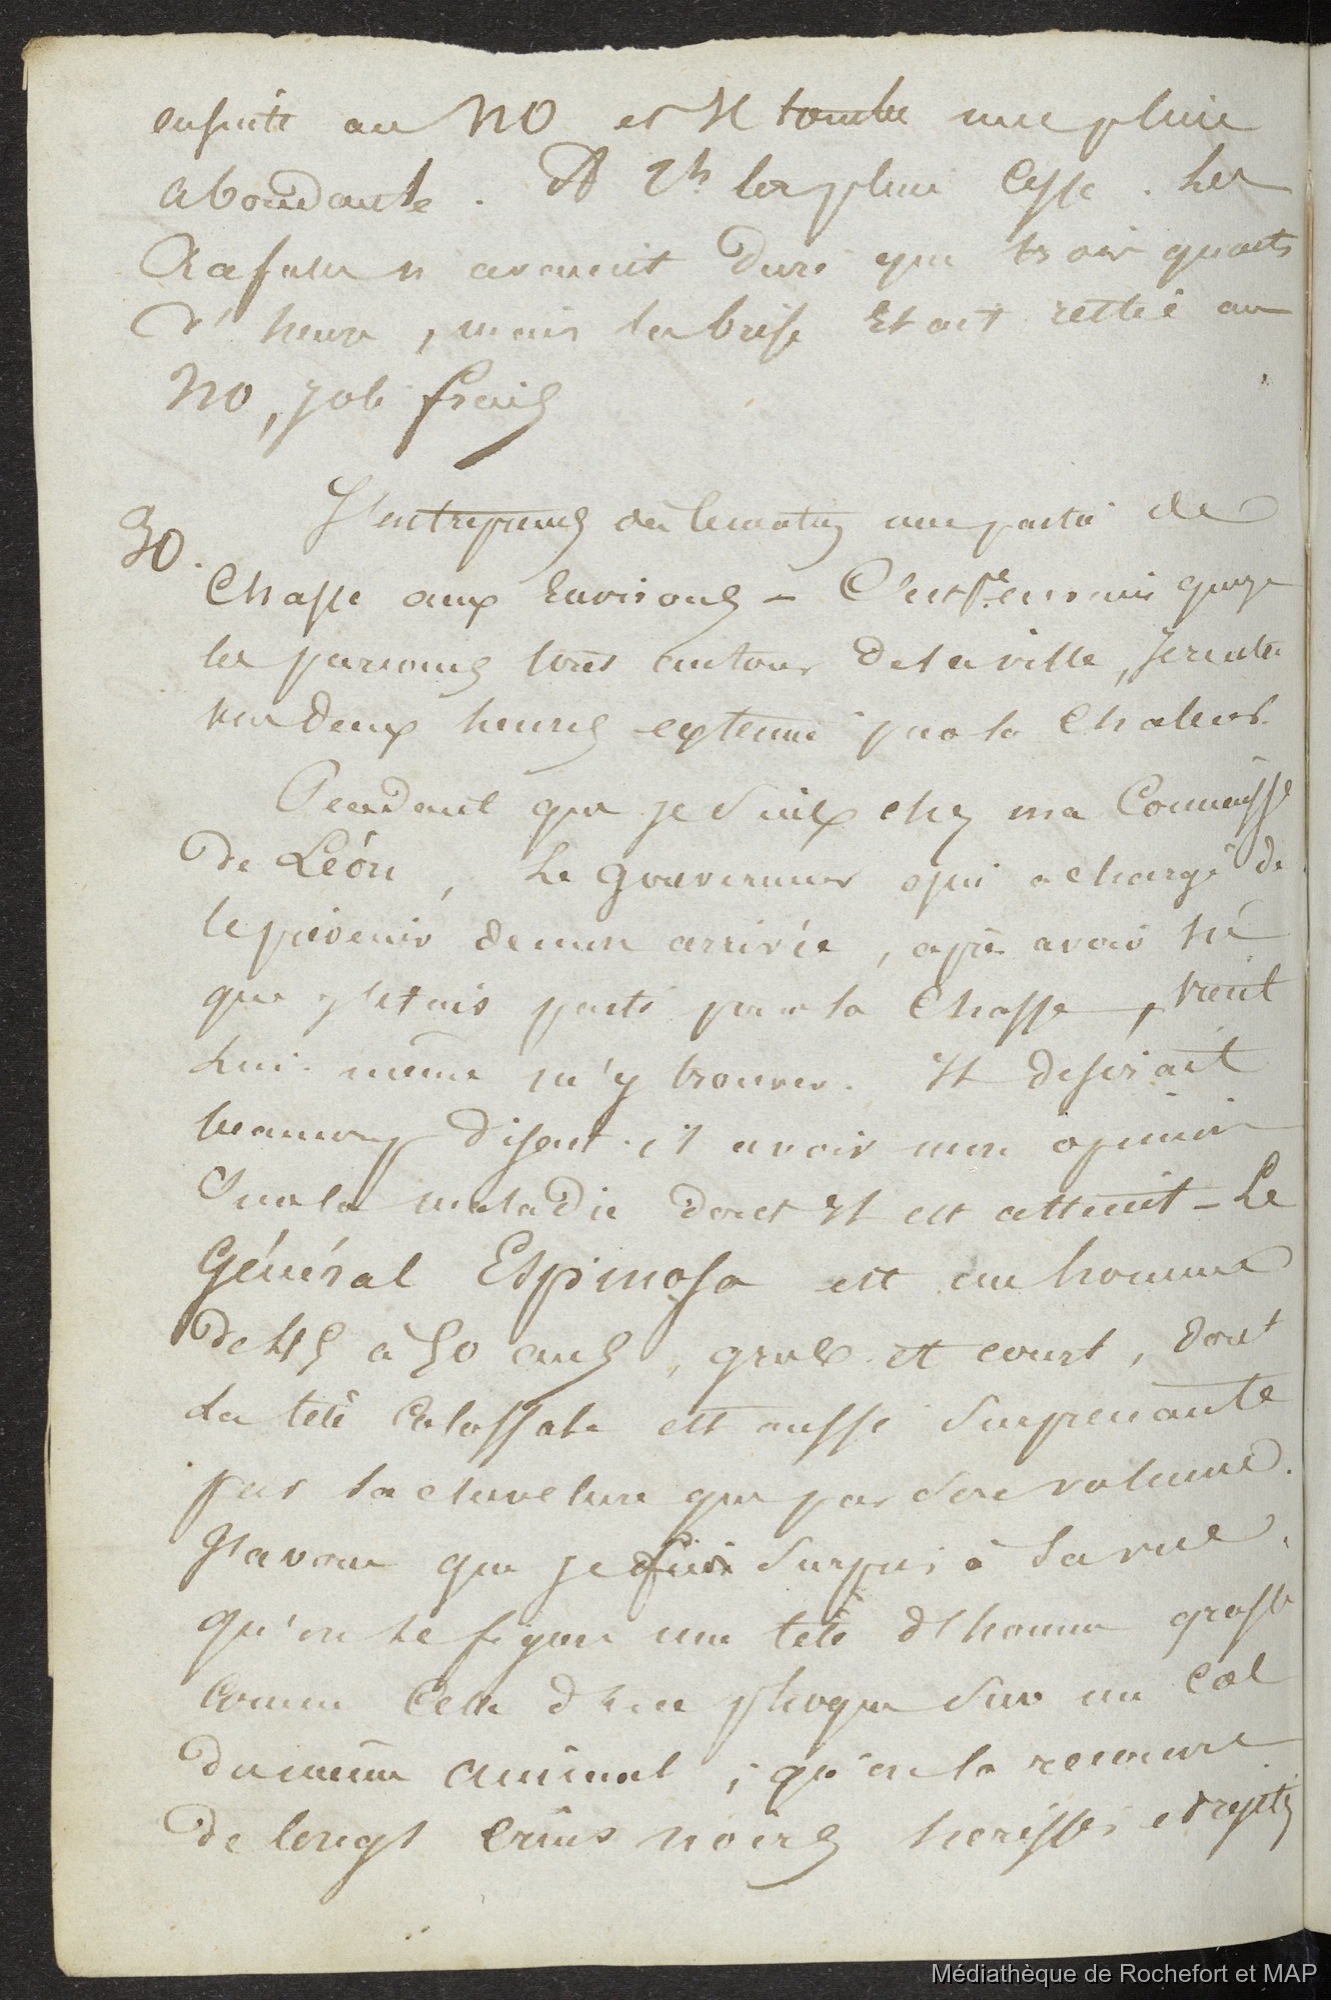 ensuite au NO et Il tombe une pluie
abondante. A 2h la pluie cesse. Les
Rafales n'avaient duré que trois quarts
d'heure, mais la brise Etait restée au
NO, joli frais
30. J'entreprends dès le matin une partie de
Chasse aux Environs – C'est en vain que je
les parcours tout autour de la ville, je rentre
vers deux heures exténué par la chaleur.
Pendant que je suis chez ma Connaisse
de Léon, Le gouverneur qui a chargé de
le prévenir de mon arrivée, après avoir su
que j'étais parti pour la Chasse, vient
Lui-même m'y trouver. Il desirait
beaucoup disait-il avoir mon opinion
Sur la maladie dont Il est atteint – Le
Général Espinosa est un homme
de 45 à 50 ans, gros et court, dont
La tête Colossale est aussi Surprenante
par sa chevelure que par Son volume.
J'avoue que je fus Surpris à sa vue.
qu'on se figure une tête d'homme grosse
comme Celle d'un phoque sur un Col
du même animal ; qu'on la recouvre
de longs crins noirs herissés et
Médiathèque de Rochefort et MAP